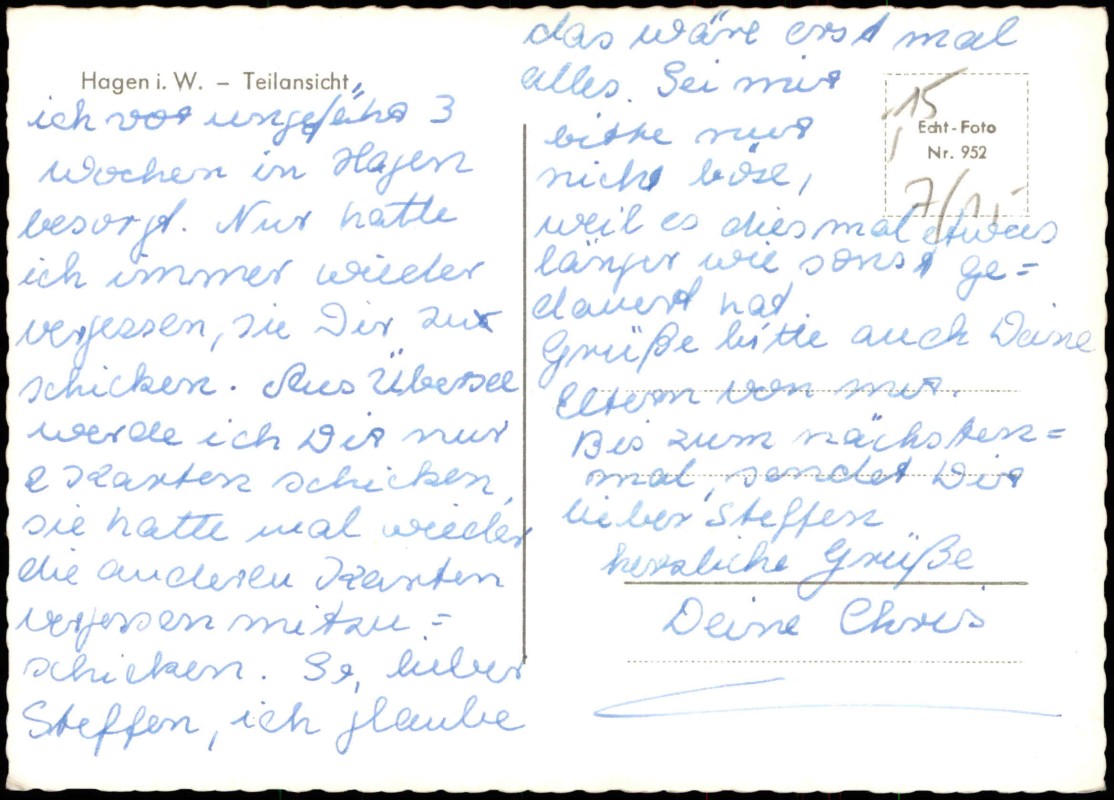 Hagen i. W. – Teilansicht
ich vor ungefähr 3
Wochen in Hagen
besorgt. Nur hatte
ich immer wieder
vergessen, sie Dir zu
schicken. Aus Übersee
werde ich Dir nur
2 Karten schicken,
sie hatte mal wieder
die anderen Karten
vergessen mitzu=
schicken. So, lieber
Steffen, ich glaube
das wäre erst mal
alles. Sei mir
bitte nur
nicht böse,
weil es diesmal etwas
länger wie sonst ge=
dauert hat
Grüße bitte auch Deine
Eltern von mir.
Bis zum nächsten=
mal, sendet Dir
lieber Steffen
herzliche Grüße
Deine Chris
15
Echt-Foto
Nr. 952